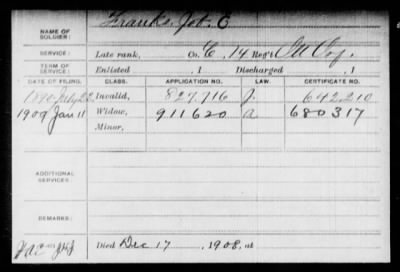 NAME OF SOLDIER: Franks, Job. C
SERVICE: Late rank, Co. C, 14 Reg't Ill Inf.
TERM OF SERVICE: Enlisted , 1 Discharged , 1
DATE OF FILING. CLASS. APPLICATION NO. LAW. CERTIFICATE NO.
1890 July 22 Invalid, 827.716 J. 642.210
1909 Jan 11 Widow, 911620 a 680317
Minor,
ADDITIONAL SERVICES:
REMARKS:
Died Dec 17, 1908, at